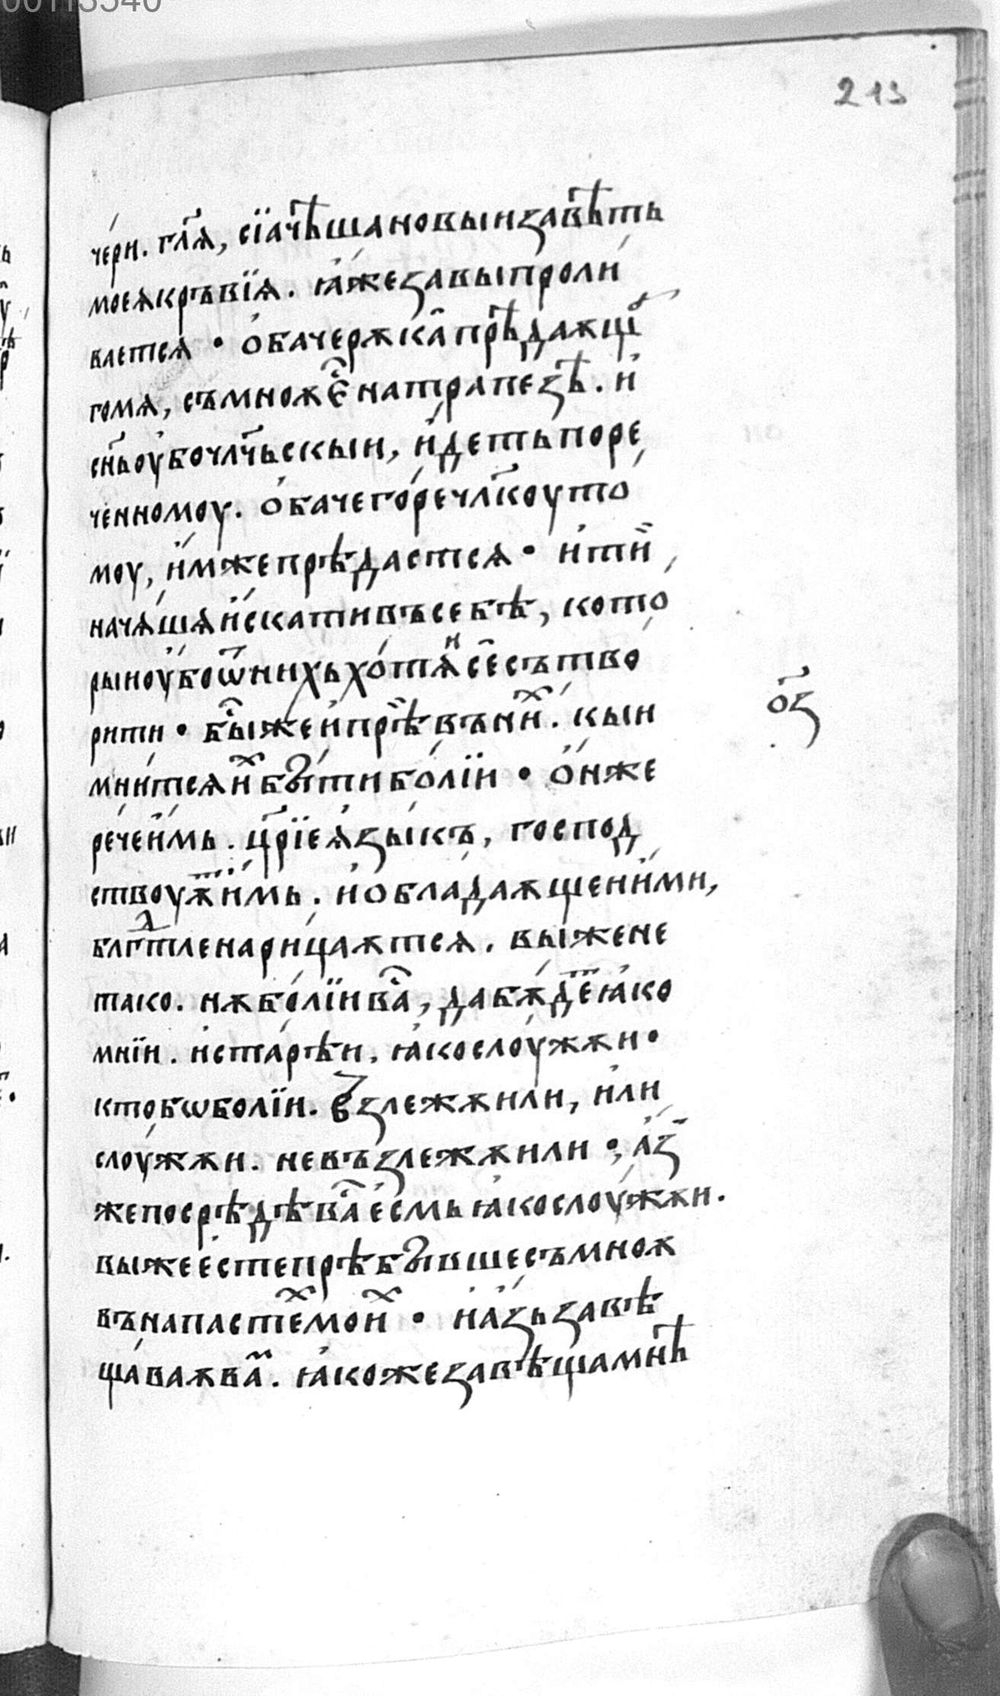 213
чери. гл҃ѧ, сїѧ ч҃ѣша новыи завѣть
моеѧ кръвїѧ. ꙗ́же за вы проли́
ваетсѧ · ѻ́баче рѫка прѣдаѫщ
гомѧ, съ мноѫ є҆ на трапезѣ. и҆
сн҃ь оу҆бо чл҃чьскыи, и҆деть по ре
че́нномоу. ѻ́баче го́ре чл҃кꙋ то
моу, и҆мже прѣдастсѧ · и҆ ти
начѧшѧ и҆скати въ себѣ, кото
рыи оу҆бо ѿ нихь хо́тѧи се сътво
рити · бы́ же и҆ прѣ въ ни. кыи
мни́тсѧ и бы́ти бо́лїи · ѻ҆н же
рече и҆мь. цр҃їе ѧ҆зы́къ, господ
ствоуѫ и҆мь. и҆ ѻбладаѫще и҆ми,
блгтле нарицаѫтсѧ. вы́ же не
тако. нѫ бо́лїи ва, да бѫде ꙗ҆ко
мнїи. и҆ старѣи, ꙗ҆ко слоу́жѫи ·
кто бѡ болїи. взлежѫи ли, и҆ли
слоу́жѫи. не възлежѫи ли · а҆з
же посрѣдѣ ва е҆смь ꙗ҆ко слоу́жѫи.
вы же е҆сте прѣбы́вше съ мноѫ
въ напасте мои · и҆ а҆зь завѣ
щаваѫ ва. ꙗ҆коже завѣща мнѣ
ѻз